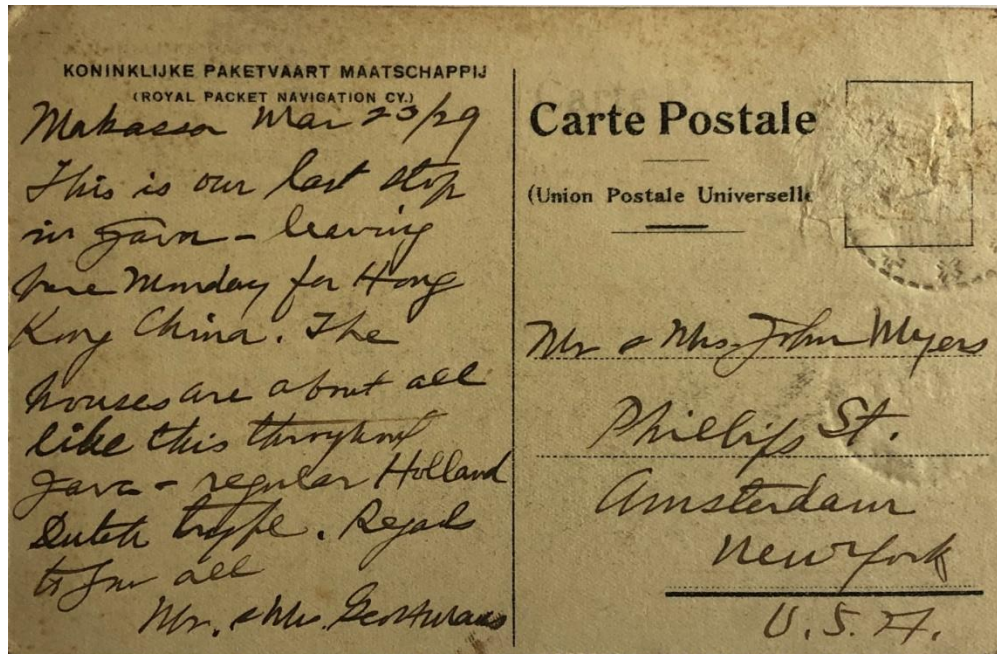 KONINKLIJKE PAKETVAART MAATSCHAPPIJ
(ROYAL PACKET NAVIGATION CY.)
Makassar Mar 23/29
This is our last stop
in Java - leaving
here Monday for Hong
Kong China. The
houses are about all
like this throughout
Java - regular Holland
Dutch type. Regards
to you all
Mr. & Mrs. Geo
Carte Postale
(Union Postale Universelle
Mr & Mrs. John Myers
Phillips St.
Amsterdam
New York
U.S.A.